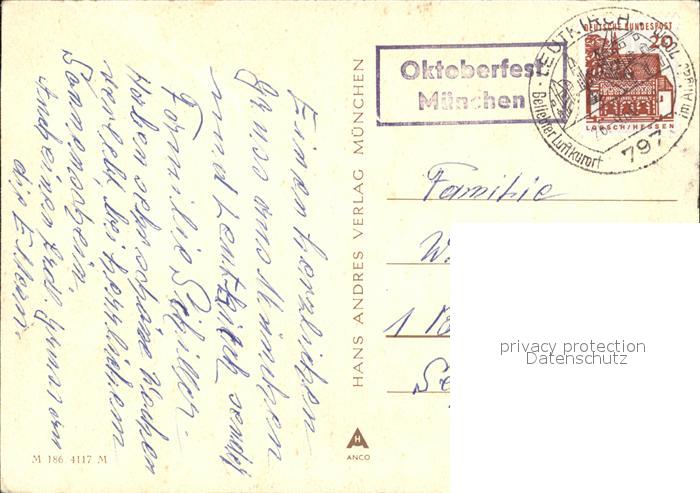 Einen herzlichen
Gruss aus München
und Leutkirch sendet
Familie Schiller.
Haben sehr schöne Wochen
verlebt bei herrlichem
Sonnenschein.
die Eltern.
HANS ANDRES VERLAG MÜNCHEN
M 186 4117 M
H
ANCO
Oktoberfest
München
LEUTKIRCH
Beliebter Luftkurort
797
DEUTSCHE BUNDESPOST
20
LORSCH/HESSEN
Familie
W
1 B
Se
privacy protection
Datenschutz